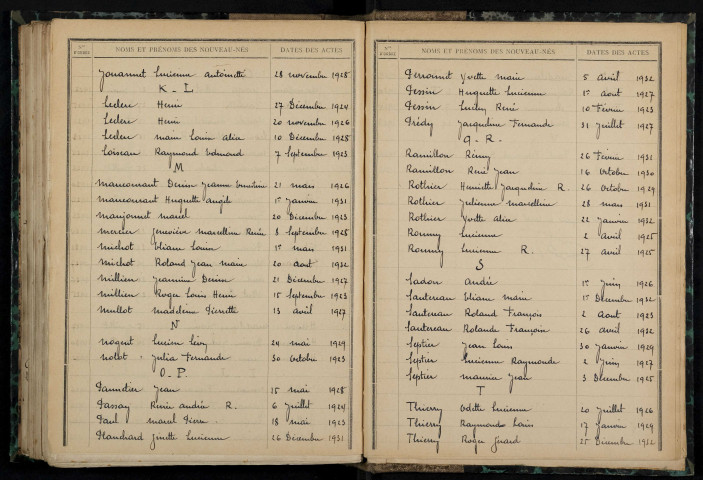 Nos D'ORDRE NOMS ET PRÉNOMS DES NOUVEAU-NÉS DATES DES ACTES
Jouannet Lucienne Antoinette 28 novembre 1928
K - L
Leclerc Henri 27 Décembre 1924
Leclerc Henri 20 novembre 1926
Leclerc Marie Louise Aline 10 Décembre 1928
Loiseau Raymond Edmond 7 Septembre 1923
M
Denise Jeanne 21 mars 1926
Huguette Angèle 1er Janvier 1931
Manjonnet Marcel 20 Décembre 1923
Mercier Geneviève Marcelline Renée 3 Septembre 1928
Michot Eliane Louise 1er mars 1931
Michot Roland Jean Marie 20 aout 1932
Millien Jeannine Denise 21 Décembre 1927
Millien Roger Louis Henri 15 Septembre 1923
Mullot Madeleine Pierrette 13 avril 1927
N
Nogent Lucien Lévy 24 mai 1929
Nolot Julia Fernande 30 octobre 1923
O - P.
Pannetier Jean 15 mai 1928
Passay Renée Andrée R. 6 Juillet 1924
Paul Marcel Pierre 18 mai 1923
Planchard Ginette Lucienne 26 Décembre 1931
Nos D'ORDRE NOMS ET PRÉNOMS DES NOUVEAU-NÉS DATES DES ACTES
Perronnet Yvette Marie 5 avril 1932
Pessin Huguette Lucienne 1er aout 1927
Pessin René 10 Février 1923
Prédy Jacqueline Fernande 31 Juillet 1927
Q - R.
Ramillon Rémy 26 Février 1931
Ramillon René Jean 16 Octobre 1930
Rothier Henriette Jacqueline R. 26 Octobre 1929
Rothier Julienne Marcelline 28 mars 1931
Rothier Yvette Aline 22 Janvier 1932
Lucienne 2 avril 1925
Lucienne R. 27 avril 1925
S
Sadon André 1er Juin 1926
Sautereau Eliane Marie 1er Décembre 1932
Sautereau Roland François 2 Aout 1923
Sautereau Rolande Françoise 26 avril 1932
Septier Jean Louis 30 Janvier 1929
Septier Lucienne Raymonde 2 Juin 1927
Septier Jean 3 Décembre 1925
T
Thierry Odette Lucienne 20 Juillet 1926
Thierry Raymonde Louise 17 Janvier 1929
Thierry Roger Gérard 25 Décembre 1932